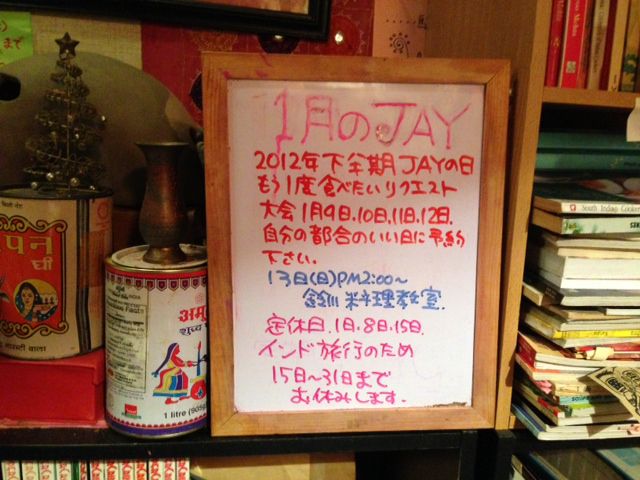 1月のJAY
2012年下半期JAYの日
もう1度食べたいリクエスト
大会1月9日.10日.11日.12日.
自分の都合のいい日に予約
下さい.
13日(日)PM2:00〜
料理教室.
定休日.1日.8日.15日.
インド旅行のため
15日〜31日まで
お休みします.
पन
घी
अमू
शुद्ध
1 litre (905g
South Indian Cooker